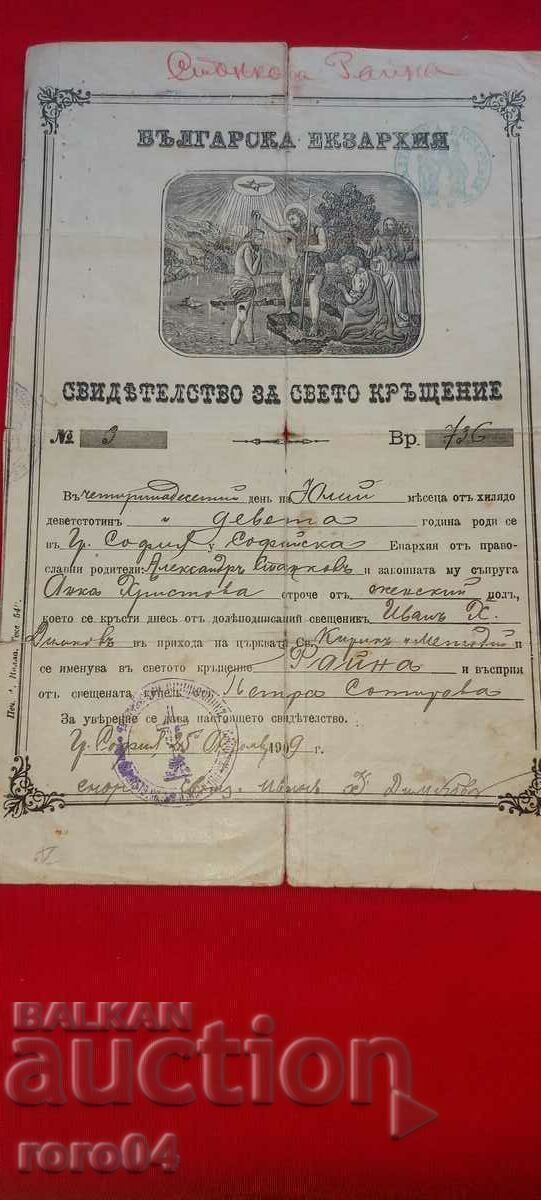 Станкова Райна
БЪЛГАРСКА ЕКЗАРХИЯ
СВИДѢТЕЛСТВО ЗА СВЕТО КРЪЩЕНИЕ
№ 3 Вр. 736
Въ четиринадесетий день на Юлий мѣсеца отъ хилядо
деветстотинъ и девета година роди се
въ гр. София, Софийска Епархия отъ право-
славни родители: Александръ Станковъ и законната му съпруга
Анка Христова отроче отъ женский полъ,
което се кръсти днесь отъ долѣподписаний свещеникъ Иванъ Х.
Димковъ въ прихода на църквата Св. Кирилъ и Методий и
се именува въ светото кръщение Райна и въсприе
отъ свещената купель Петра Сотирова
За увѣрение се дава настоящето свидѣтелство.
гр. София, 25 1909 г.
Иванъ Х. Димковъ
BALKAN
auction
roro04